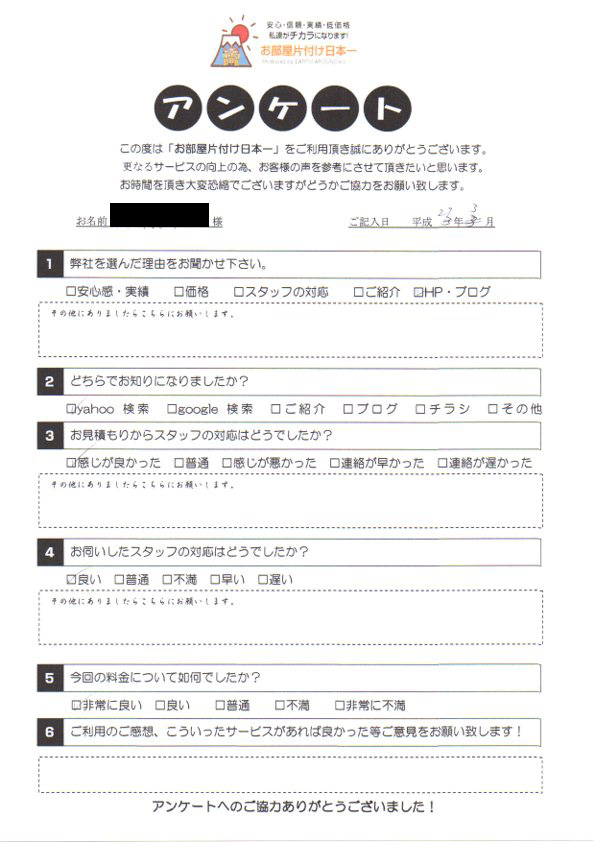 安心・信頼・実績・低価格
私達がチカラになります!
お部屋片付け日本一
アンケート
この度は「お部屋片付け日本一」をご利用頂き誠にありがとうございます。
更なるサービスの向上の為、お客様の声を参考にさせて頂きたいと思います。
お時間を頂き大変恐縮でございますがどうかご協力をお願い致します。
お名前 様 ご記入日 平成 27年 3月
1 弊社を選んだ理由をお聞かせ下さい。
□安心感・実績 □価格 □スタッフの対応 □ご紹介 ☑HP・ブログ
その他にありましたらこちらにお願いします。
2 どちらでお知りになりましたか?
☑yahoo 検索 □google 検索 □ご紹介 □ブログ □チラシ □その他
3 お見積もりからスタッフの対応はどうでしたか?
☑感じが良かった □普通 □感じが悪かった □連絡が早かった □連絡が遅かった
その他にありましたらこちらにお願いします。
4 お伺いしたスタッフの対応はどうでしたか?
☑良い □普通 □不満 □早い □遅い
その他にありましたらこちらにお願いします。
5 今回の料金について如何でしたか?
☑非常に良い □良い □普通 □不満 □非常に不満
6 ご利用のご感想、こういったサービスがあれば良かった等ご意見をお願い致します!
アンケートへのご協力ありがとうございました!